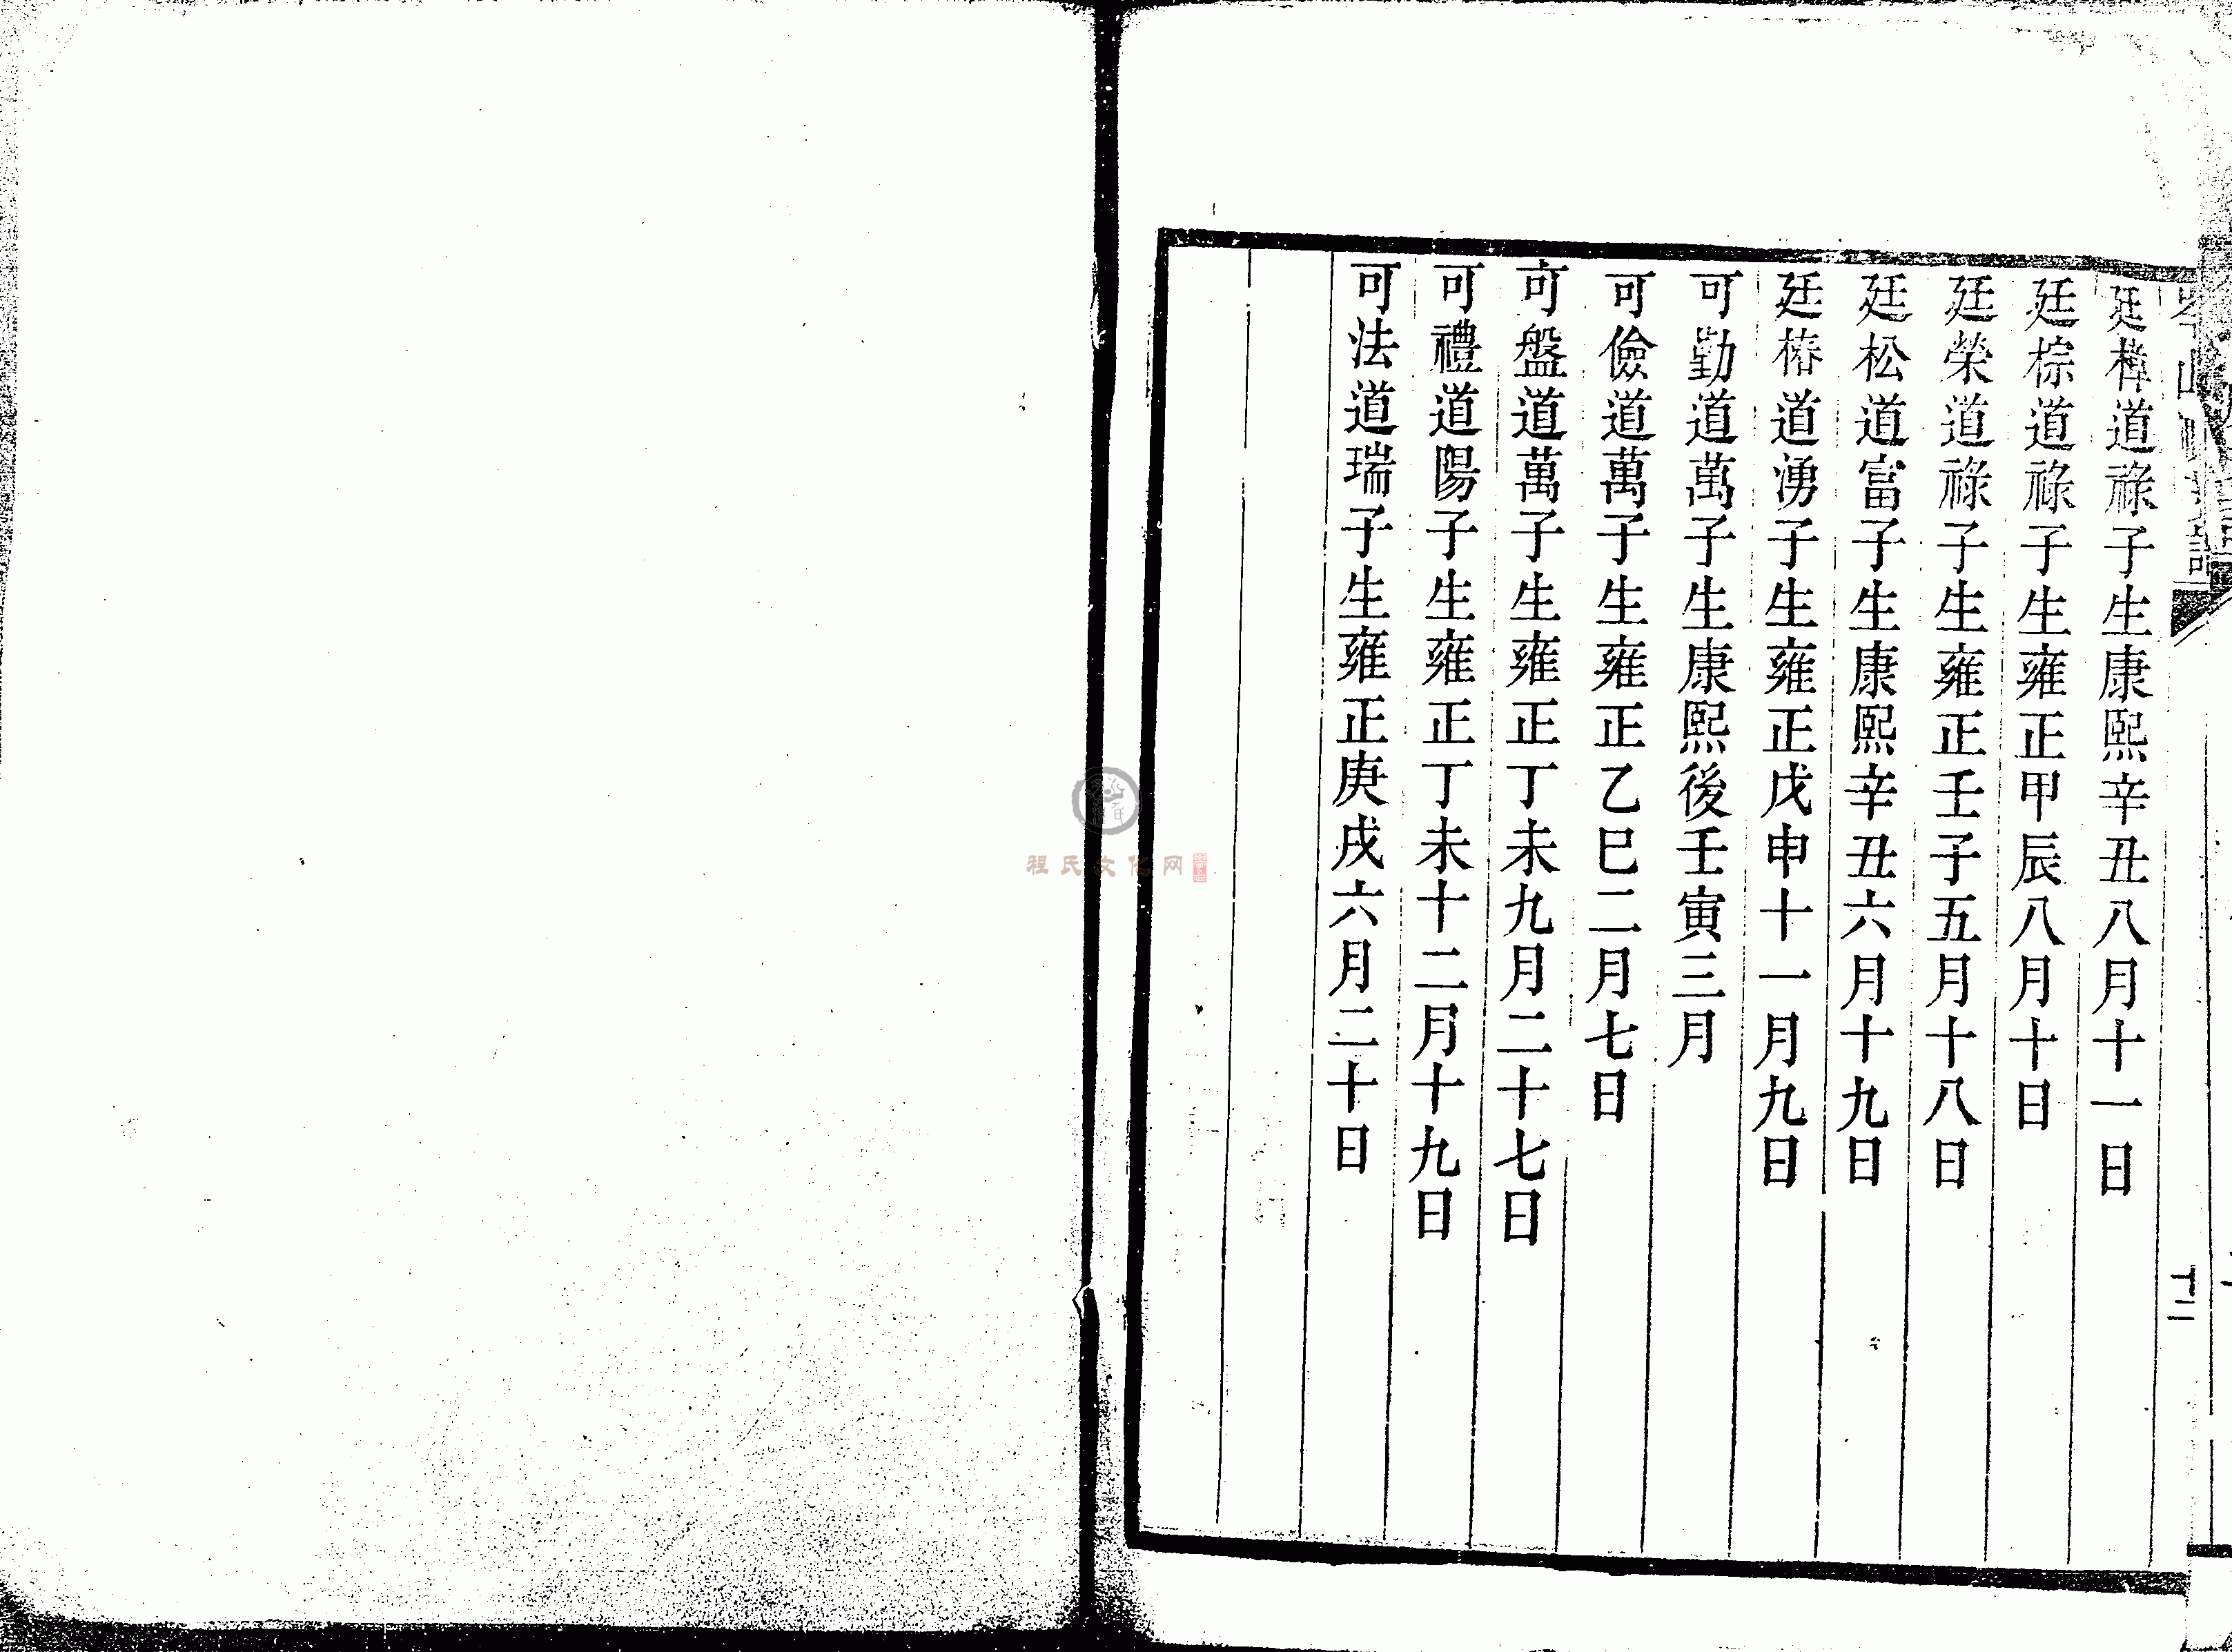 廷樟道祿子生康熙辛丑八月十一日
廷棕道祿子生雍正甲辰八月十日
廷榮道祿子生雍正壬子五月十八日
廷松道富子生康熙辛丑六月十九日
廷椿道湧子生雍正戊申十一月九日
可勤道萬子生康熙後壬寅三月
可儉道萬子生雍正乙巳二月七日
可盤道萬子生雍正丁未九月二十七日
可禮道陽子生雍正丁未十二月十九日
可法道瑞子生雍正庚戌六月二十日
程氏文化网